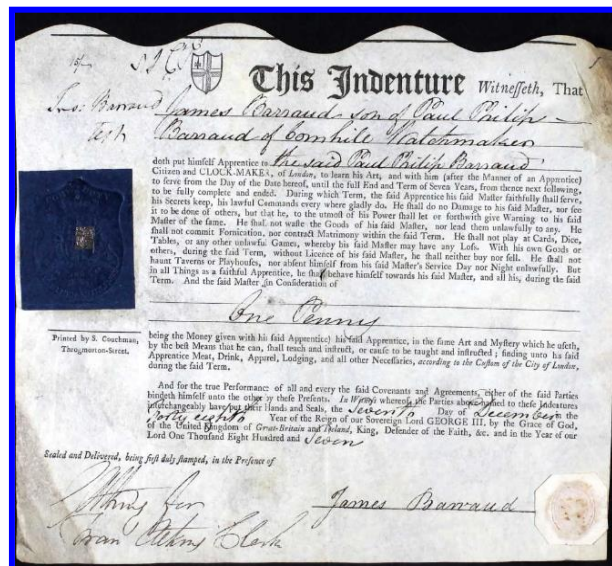 This Indenture Witnesseth, That
Jas: Barraud James Barraud son of Paul Philip
Barraud of Cornhill Watchmaker
doth put himself Apprentice to the said Paul Philip Barraud
Citizen and CLOCK-MAKER, of London, to learn his Art, and with him (after the Manner of an Apprentice)
to serve from the Day of the Date hereof, until the full End and Term of Seven Years, from thence next following,
to be fully complete and ended. During which Term, the said Apprentice his said Master faithfully shall serve,
his Secrets keep, his lawful Commands every where gladly do. He shall do no Damage to his said Master, nor see
it to be done of others, but that he, to the utmost of his Power shall let or forthwith give Warning to his said
Master of the same. He shall not waste the Goods of his said Master, nor lend them unlawfully to any. He
shall not commit Fornication, nor contract Matrimony within the said Term. He shall not play at Cards, Dice,
Tables, or any other unlawful Games, whereby his said Master may have any Loss. With his own Goods or
others, during the said Term, without Licence of his said Master, he shall neither buy nor sell. He shall not
haunt Taverns or Playhouses, nor absent himself from his said Master's Service Day nor Night unlawfully. But
in all Things as a faithful Apprentice, he shall behave himself towards his said Master, and all his, during the said
Term. And the said Master in Consideration of
One Penny
being the Money given with his said Apprentice) his said Apprentice, in the same Art and Mystery which he useth,
by the best Means that he can, shall teach and instruct, or cause to be taught and instructed; finding unto his said
Apprentice Meat, Drink, Apparel, Lodging, and all other Necessaries, according to the Custom of the City of London,
during the said Term.
Printed by S. Couchman,
Throgmorton-Street.
And for the true Performance of all and every the said Covenants and Agreements, either of the said Parties
bindeth himself unto the other by these Presents. In Witness whereof, the Parties above-named to these Indentures
interchangeably have put their Hands and Seals, the Seventh Day of December in the
forty eighth Year of the Reign of our Sovereign Lord GEORGE III, by the Grace of God,
of the United Kingdom of Great-Britain and Ireland, King, Defender of the Faith, &c. and in the Year of our
Lord One Thousand Eight Hundred and Seven
Sealed and Delivered, being first duly stamped, in the Presence of
James Barraud
Atkins Clerk